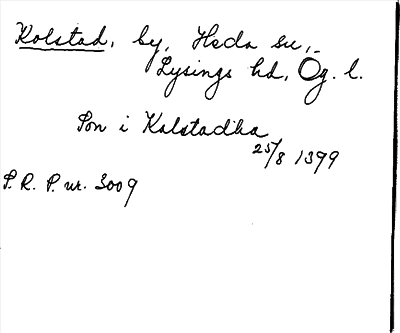 Kolstad, by, Heda sn,
Lysings hd, Ög. l.
Jon i Kolstadha
25/8 1399
S. R. P. nr. 3009